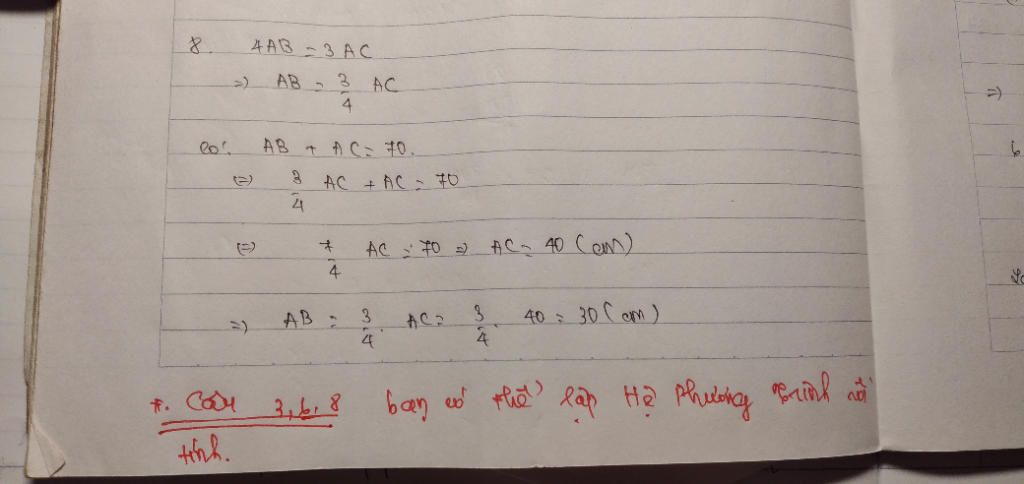 8. 4AB = 3AC
=) AB = 3/4 AC
có: AB + AC = 70.
(=) 3/4 AC + AC = 70
(=) 7/4 AC = 70 => AC = 40 (cm)
=) AB = 3/4. AC = 3/4. 40 = 30 (cm)
*. Câu 3, 6, 8 bạn có thể lập Hệ Phương trình rồi
tính.
=)
6